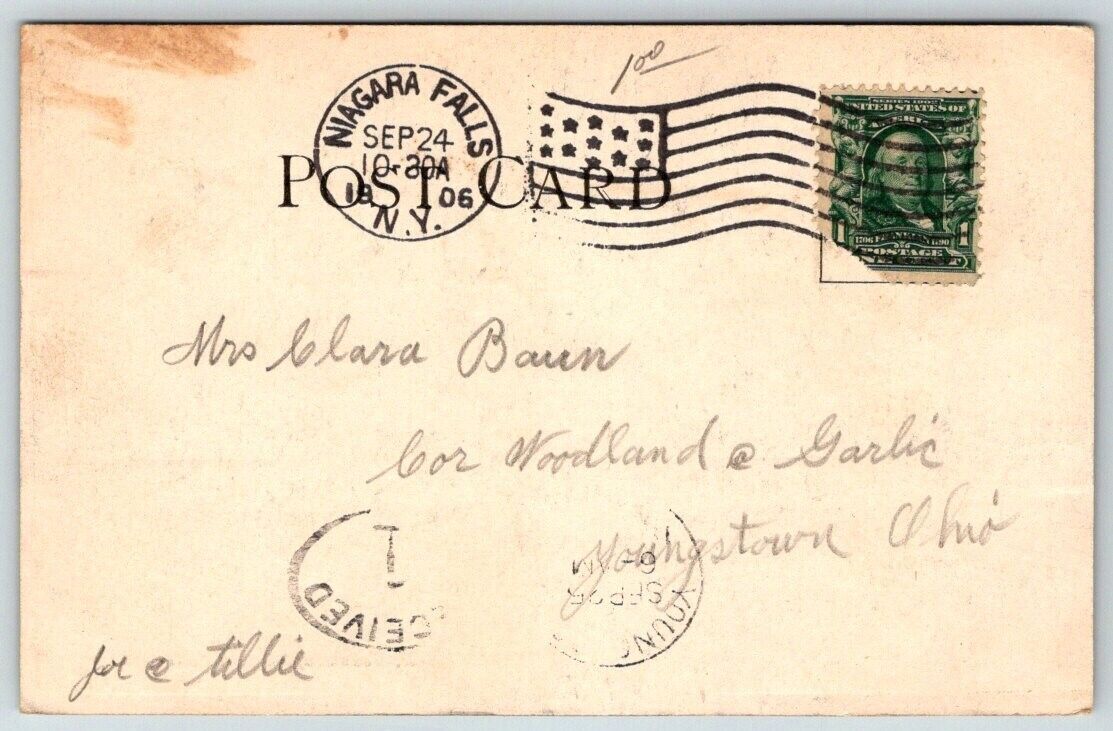 1.00
NIAGARA FALLS
SEP 24
10-30A
1906
N.Y.
POST CARD
SERIES 1902
UNITED STATES OF
AMERI
1706 FRANKLIN 1790
1 POSTAGE 1
Mrs Clara Baun
Cor Woodland & Garlic
Youngstown Ohio
1
CEIVED
6- AM
SEP 25
YOUNG
Joe & Tillie